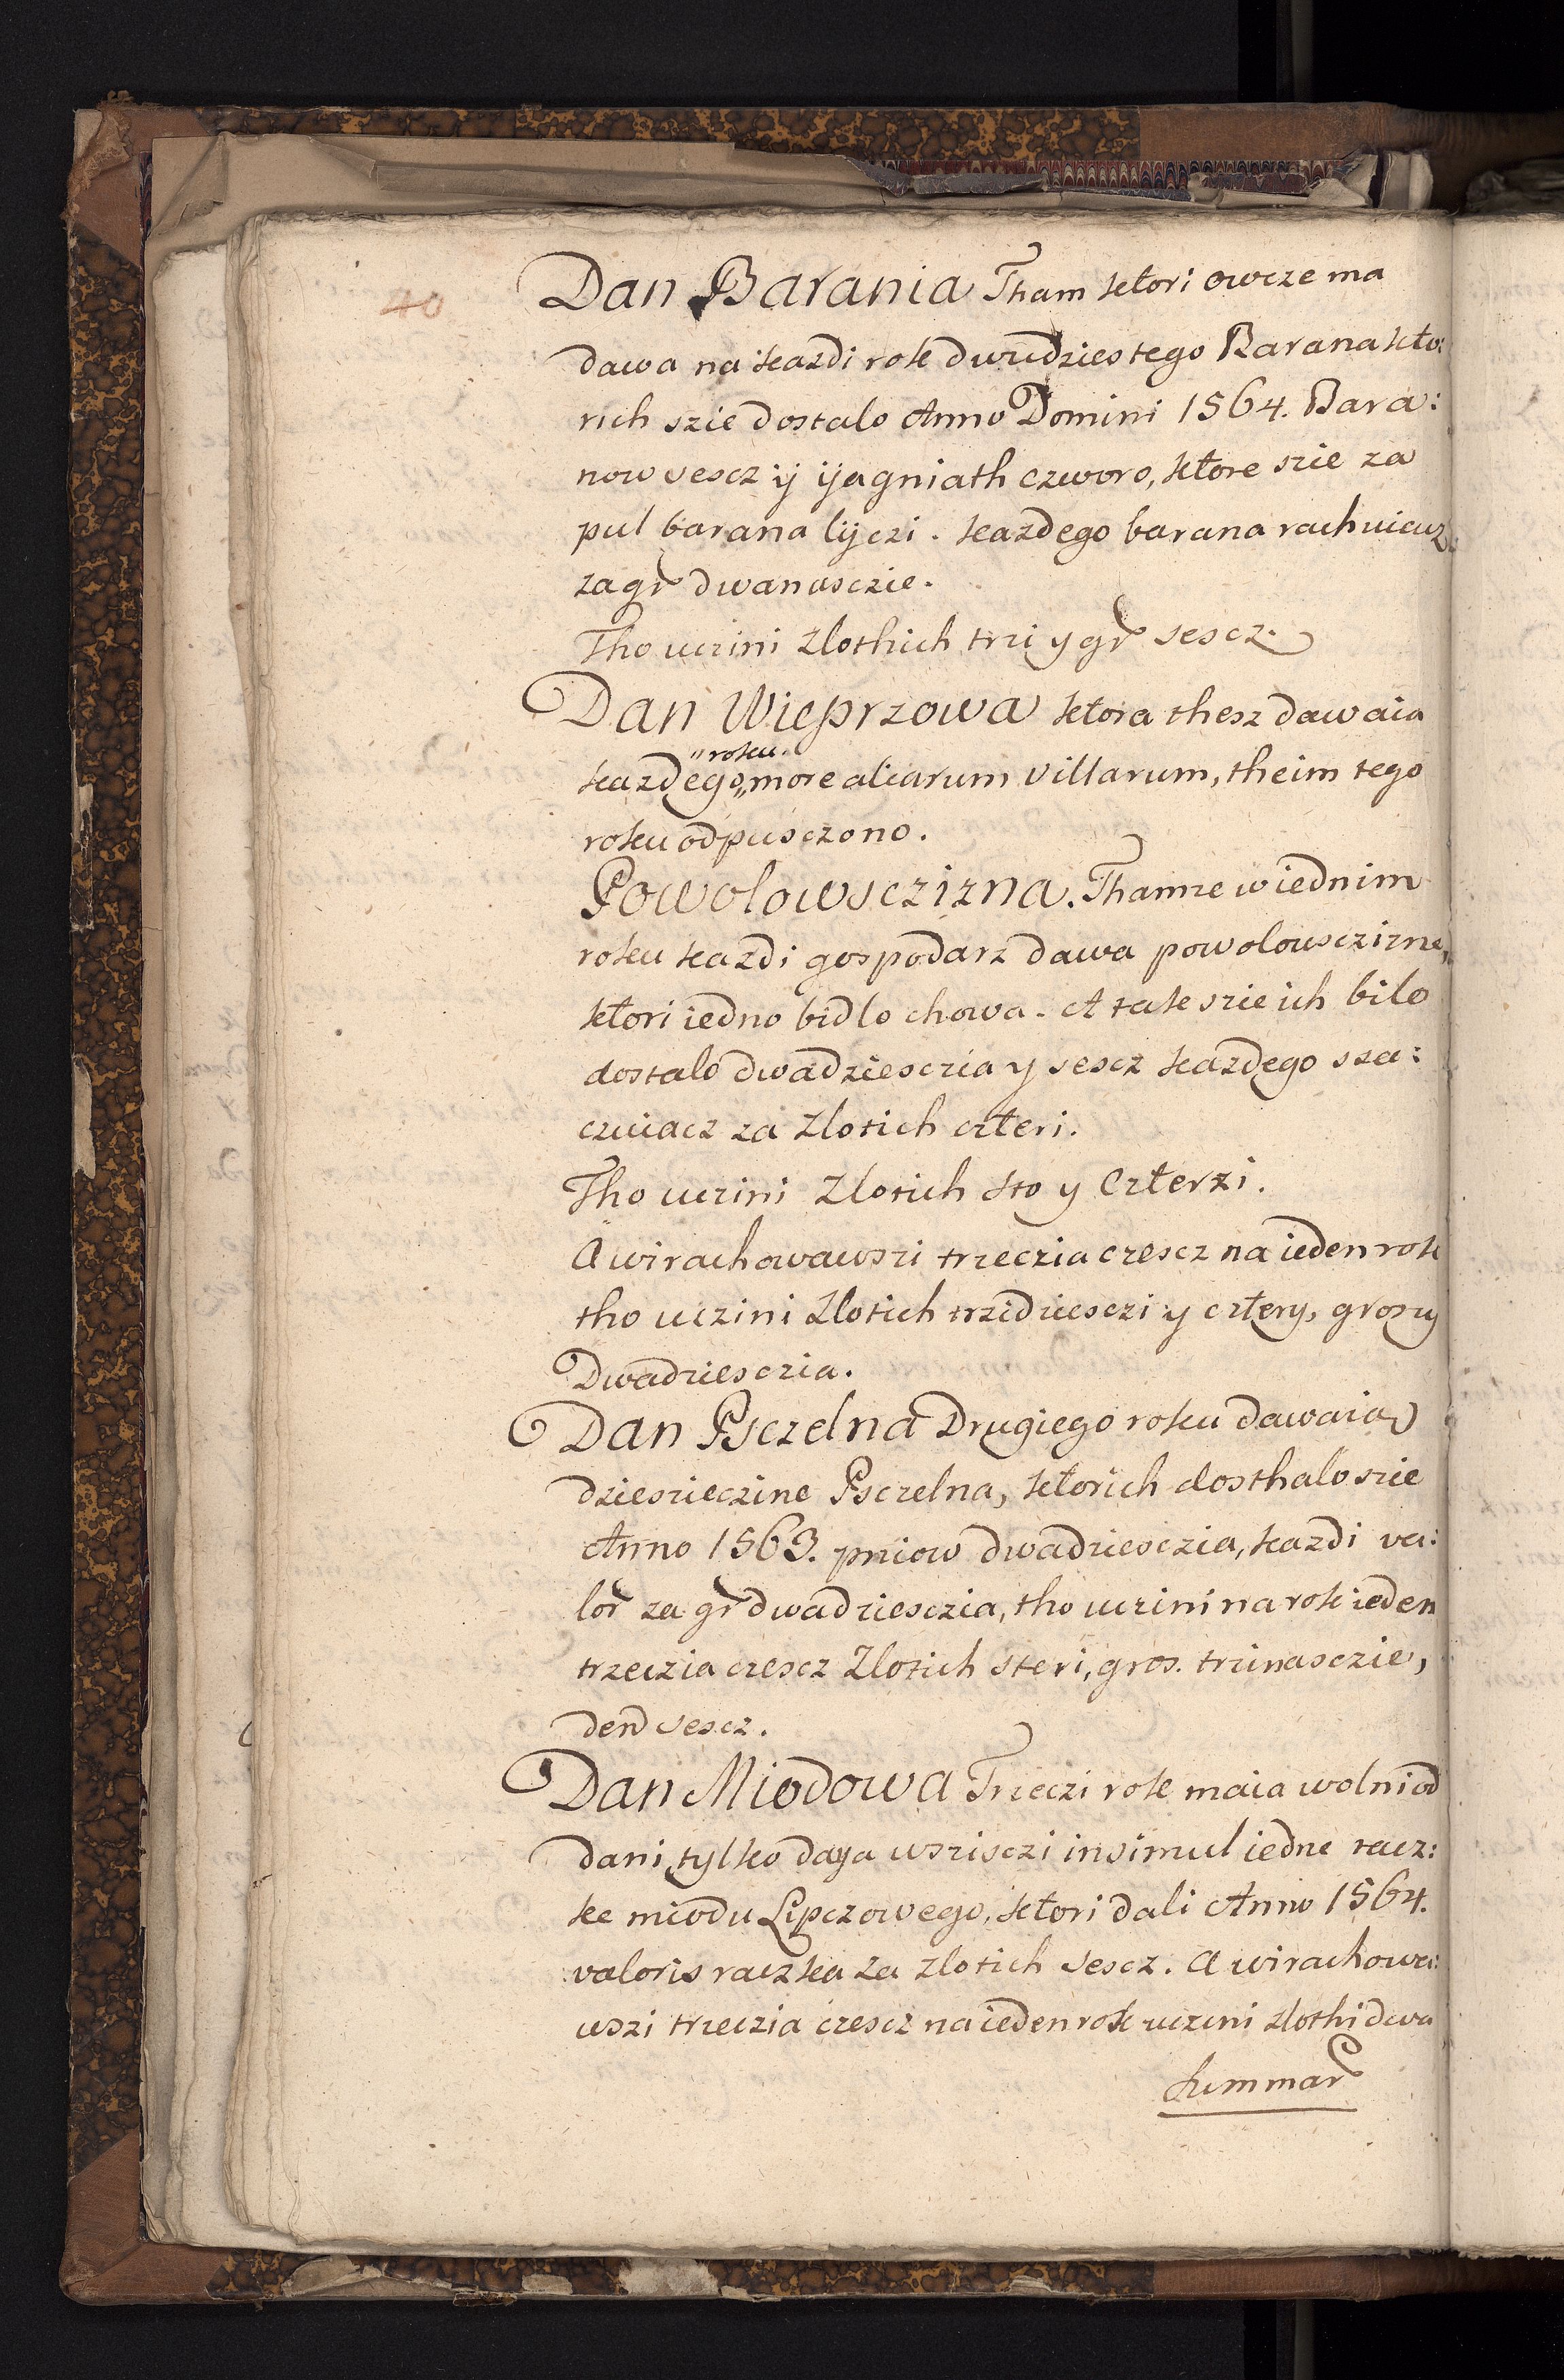 40
Dan Barania Tham ktori owcze ma
dawa na kazdi rok dwudziestego Barana kto:
rich szie dostalo Anno Domini 1564. Bara:
now sescz ÿ ÿagniath czworo, ktore szie za
pul barana lÿczi. kazdego barana rachuiucz
za gr dwanasczie.
Tho uczini Zlothich trzi y gr sescz.
Dan Wieprzowa ktora thesz dawaia
"roku.
kazdego,, more aliarum villarum, theim tego
roku odpusczono.
Powolowsczizna. Thamze w iednim
roku kazdi gospodarz dawa powolowsczizne,
ktori iedno bidlo chowa. A tak szie ich bilo
dostalo dwadziesczia y sescz kazdego sza:
czuiacz za Zlotich czteri.
Tho uczini Zlotich sto y Czterzi.
A wirachowawszi trzeczia czescz na ieden rok
tho uczini Zlotich trzidziesczi y cztery, groszy
Dwadziesczia.
Dan Psczelna Drugiego roku dawaia
dziesieczine Psczelna, ktorich dosthalo szie
Anno 1563. pniow dwadziesczia, kazdi va:
lor za gr dwadziesczia, tho uczini na rok ieden
trzeczia czescz Zlotich steri, gros. trzinasczie,
den sescz.
Dan Miodowa Trzeczi rok maia wolni od
dani, tylko daya wszisczi insimul iedne racz:
ke miodu Lipczowego, ktori dali Anno 1564.
valoris raczka za zlotich sescz. A wirachowa:
wszi trzeczia czescz na ieden rok uczini zlothi dwa
Summar